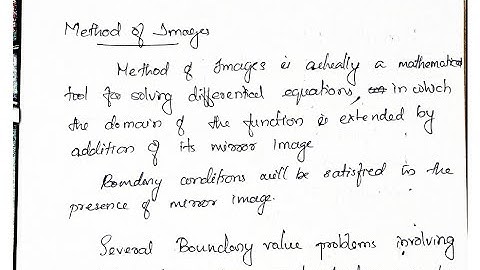 Method of Images
Method of Images is actually a mathematical
tool for solving differential equations, in which
the domain of the function is extended by
addition of its mirror image
Boundary conditions will be satisfied in the
presence of mirror image.
Several Boundary value problems involving